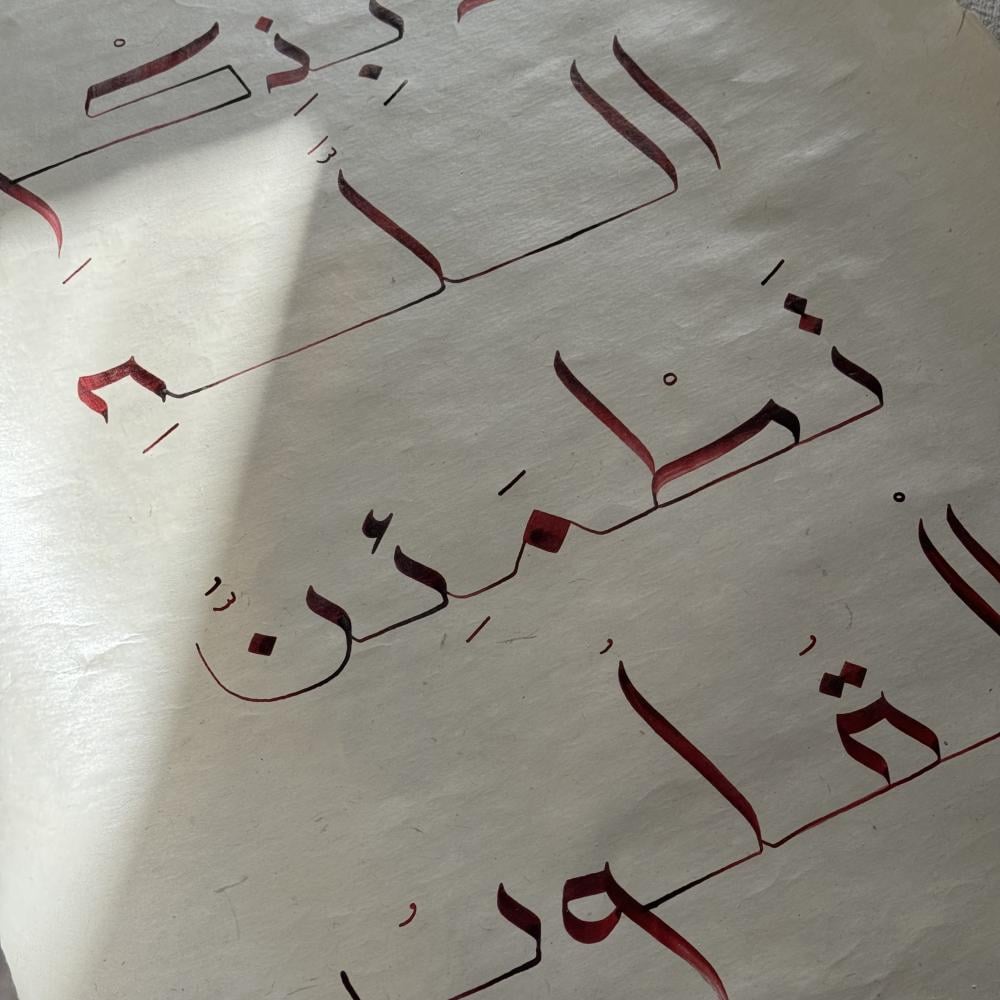 بِذِكْرِ
اللَّهِ
تَطْمَئِنُّ
الْقُلُوبُ